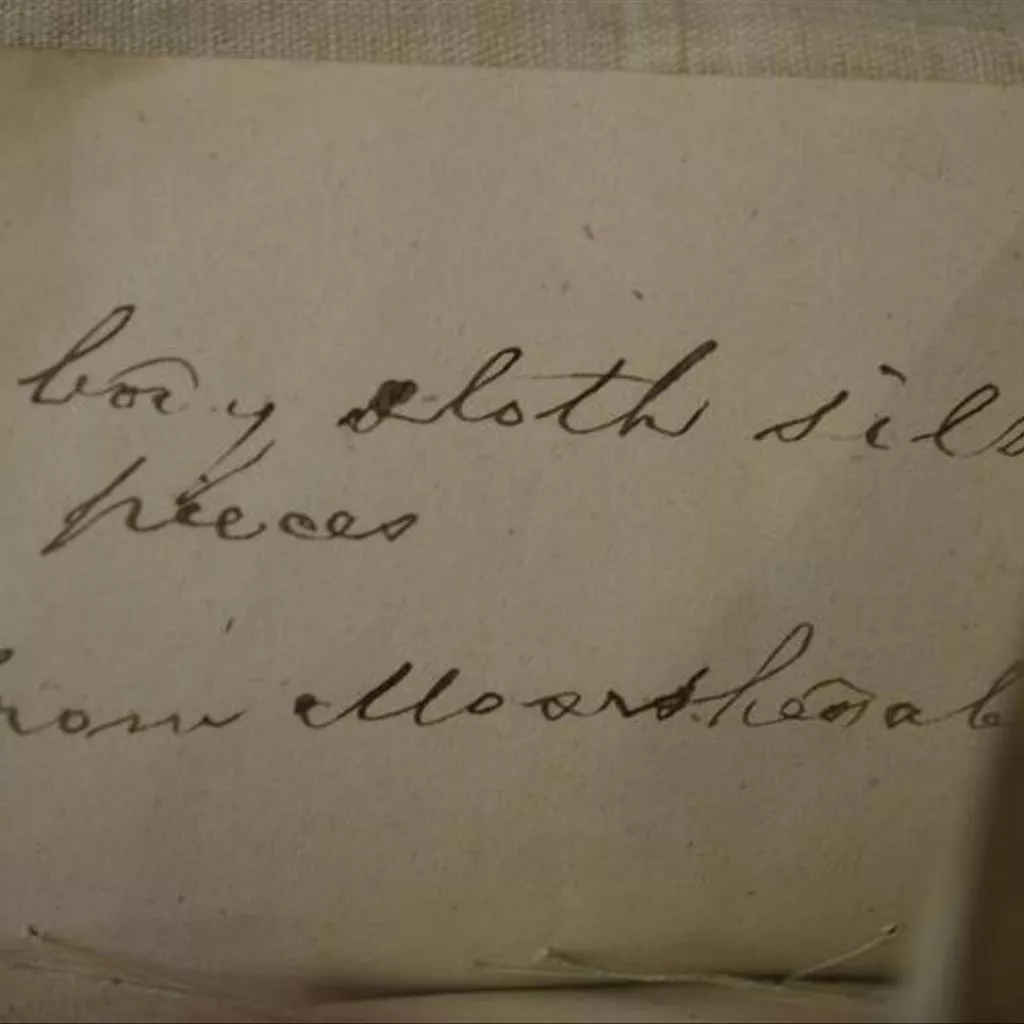 body cloth sil
pieces
from Moorshedab